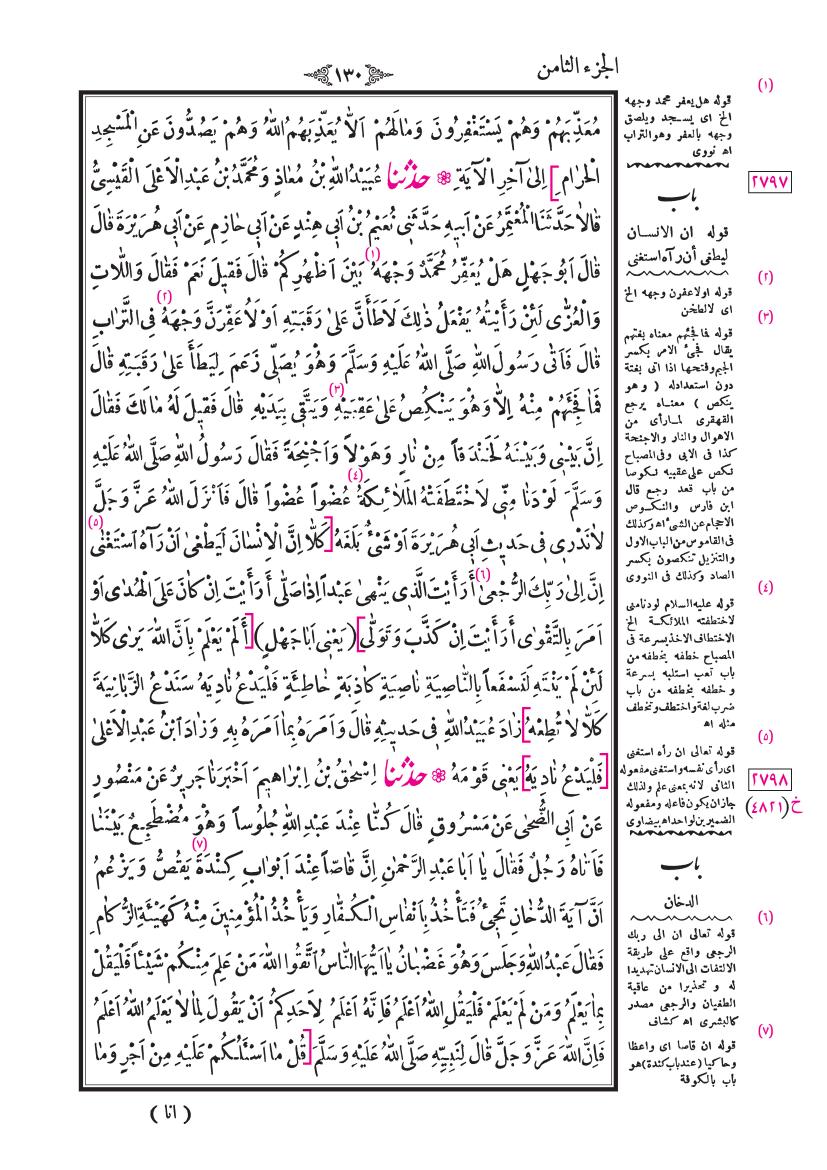 الجزء الثامن
١٣٠
مُعَذِّبَهُمْ وَهُمْ يَسْتَغْفِرُونَ وَمَالَهُمْ اَلَّا يُعَذِّبَهُمُ اللّٰهُ وَهُمْ يَصُدُّونَ عَنِ الْمَسْجِدِ
الْحَرَامِ] اِلىٰ آخِرِ الْآيَةِ ❁ حدّثنا عُبَيْدُ اللّٰهِ بْنُ مُعَاذٍ وَمُحَمَّدُ بْنُ عَبْدِ الْاَعْلَى الْقَيْسِيُّ
قَالَا حَدَّثَنَا الْمُعْتَمِرُ عَنْ اَبِيهِ حَدَّثَنِى نُعَيْمُ بْنُ اَبِى هِنْدٍ عَنْ اَبِى حَازِمٍ عَنْ اَبِى هُرَيْرَةَ قَالَ
قَالَ اَبُو جَهْلٍ هَلْ يُعَفِّرُ مُحَمَّدٌ وَجْهَهُ (١) بَيْنَ اَظْهُرِكُمْ قَالَ فَقِيلَ نَعَمْ فَقَالَ وَاللَّاتِ
وَالْعُزّٰى لَئِنْ رَأَيْتُهُ يَفْعَلُ ذٰلِكَ لَاَطَأَنَّ عَلىٰ رَقَبَتِهِ اَوْ لَاُعَفِّرَنَّ وَجْهَهُ (٢) فِى التُّرَابِ
قَالَ فَاَتٰى رَسُولَ اللّٰهِ صَلَّى اللّٰهُ عَلَيْهِ وَسَلَّمَ وَهُوَ يُصَلِّى زَعَمَ لِيَطَأَ عَلىٰ رَقَبَتِهِ قَالَ
فَمَا فَجِئَهُمْ مِنْهُ اِلَّا وَهُوَ يَنْكِصُ عَلىٰ عَقِبَيْهِ (٣) وَيَتَّقِى بِيَدَيْهِ قَالَ فَقِيلَ لَهُ مَالَكَ فَقَالَ
اِنَّ بَيْنِى وَبَيْنَهُ لَخَنْدَقاً مِنْ نَارٍ وَهَوْلاً وَاَجْنِحَةً فَقَالَ رَسُولُ اللّٰهِ صَلَّى اللّٰهُ عَلَيْهِ
وَسَلَّمَ لَوْ دَنَا مِنِّى لَاخْتَطَفَتْهُ الْمَلَائِكَةُ (٤) عُضْواً عُضْواً قَالَ فَاَنْزَلَ اللّٰهُ عَزَّ وَجَلَّ
لَا نَدْرِى فِى حَدِيثِ اَبِى هُرَيْرَةَ اَوْ شَىْءٌ بَلَغَهُ [كَلَّا اِنَّ الْاِنْسَانَ لَيَطْغٰى اَنْ رَآهُ اسْتَغْنٰى (٥)
اِنَّ اِلىٰ رَبِّكَ الرُّجْعٰى (٦) أَرَأَيْتَ الَّذِى يَنْهٰى عَبْداً اِذَا صَلّٰى أَرَأَيْتَ اِنْ كَانَ عَلَى الْهُدٰى اَوْ
اَمَرَ بِالتَّقْوٰى أَرَأَيْتَ اِنْ كَذَّبَ وَتَوَلّٰى] (يَعْنِى اَبَا جَهْلٍ) [أَلَمْ يَعْلَمْ بِاَنَّ اللّٰهَ يَرٰى كَلَّا
لَئِنْ لَمْ يَنْتَهِ لَنَسْفَعاً بِالنَّاصِيَةِ نَاصِيَةٍ كَاذِبَةٍ خَاطِئَةٍ فَلْيَدْعُ نَادِيَهُ سَنَدْعُ الزَّبَانِيَةَ
كَلَّا لَا تُطِعْهُ] زَادَ عُبَيْدُ اللّٰهِ فِى حَدِيثِهِ قَالَ وَاَمَرَهُ بِمَا اَمَرَهُ بِهِ وَزَادَ ابْنُ عَبْدِ الْاَعْلىٰ
[فَلْيَدْعُ نَادِيَهُ] يَعْنِى قَوْمَهُ ❁ حدّثنا اِسْحٰقُ بْنُ اِبْرَاهِيمَ اَخْبَرَنَا جَرِيرٌ عَنْ مَنْصُورٍ
عَنْ اَبِى الضُّحٰى عَنْ مَسْرُوقٍ قَالَ كُنَّا عِنْدَ عَبْدِ اللّٰهِ جُلُوساً وَهُوَ مُضْطَجِعٌ بَيْنَنَا
فَاَتَاهُ رَجُلٌ فَقَالَ يَا اَبَا عَبْدِ الرَّحْمٰنِ اِنَّ قَاصّاً (٧) عِنْدَ اَبْوَابِ كِنْدَةَ يَقُصُّ وَيَزْعُمُ
اَنَّ آيَةَ الدُّخَانِ تَجِىءُ فَتَأْخُذُ بِاَنْفَاسِ الْكُفَّارِ وَيَأْخُذُ الْمُؤْمِنِينَ مِنْهُ كَهَيْئَةِ الزُّكَامِ
فَقَالَ عَبْدُ اللّٰهِ وَجَلَسَ وَهُوَ غَضْبَانُ يَا اَيُّهَا النَّاسُ اتَّقُوا اللّٰهَ مَنْ عَلِمَ مِنْكُمْ شَيْئاً فَلْيَقُلْ
بِمَا يَعْلَمُ وَمَنْ لَمْ يَعْلَمْ فَلْيَقُلِ اللّٰهُ اَعْلَمُ فَاِنَّهُ اَعْلَمُ لِاَحَدِكُمْ اَنْ يَقُولَ لِمَا لَا يَعْلَمُ اللّٰهُ اَعْلَمُ
فَاِنَّ اللّٰهَ عَزَّ وَجَلَّ قَالَ لِنَبِيِّهِ صَلَّى اللّٰهُ عَلَيْهِ وَسَلَّمَ [قُلْ مَا اَسْئَلُكُمْ عَلَيْهِ مِنْ اَجْرٍ وَمَا
( انا )
(١)
قوله هل يعفر محمد وجهه
الخ اى يسجد ويلصق
وجهه بالعفر وهو التراب
اه نووى
٢٧٩٧
باب
قوله ان الانسان
ليطغى أن رآه استغنى
(٢)
قوله اولاعفرن وجهه الخ
اى لالطخن
(٣)
قوله فما فجئهم معناه بغتهم
يقال فجئ الامر بكسر
الجيم وفتحها اذا اتى بغتة
دون استعداد له ( وهو
ينكص ) معناه يرجع
القهقرى لما رأى من
الاهوال والنار والاجنحة
كذا فى الابى وفى المصباح
نكص على عقبيه نكوصا
من باب قعد رجع قال
ابن فارس والنكوص
الاحجام عن الشىء اه وكذلك
فى القاموس من الباب الاول
والتنزيل تنكصون بكسر
الصاد وكذلك فى النووى
(٤)
قوله عليه السلام لودنا منى
لاختطفته الملائكة الخ
الاختطاف الاخذ بسرعة فى
المصباح خطفه يخطفه من
باب تعب استلبه بسرعة
وخطفه يخطفه من باب
ضرب لغة واختطف وتخطف
مثله اه
(٥)
قوله تعالى ان رأه استغنى
اى رأى نفسه واستغنى مفعوله
الثانى لانه بمعنى علم ولذلك
جاز ان يكون فاعله ومفعوله
الضميرين لواحد اه بيضاوى
٢٧٩٨
خ (٤٨٢١)
باب
الدخان
(٦)
قوله تعالى ان الى ربك
الرجعى واقع على طريقة
الالتفات الى الانسان تهديدا
له و تحذيرا من عاقبة
الطغيان والرجعى مصدر
كالبشرى اه كشاف
(٧)
قوله ان قاصا اى واعظا
وحاكيا (عند باب كندة) هو
باب بالكوفة